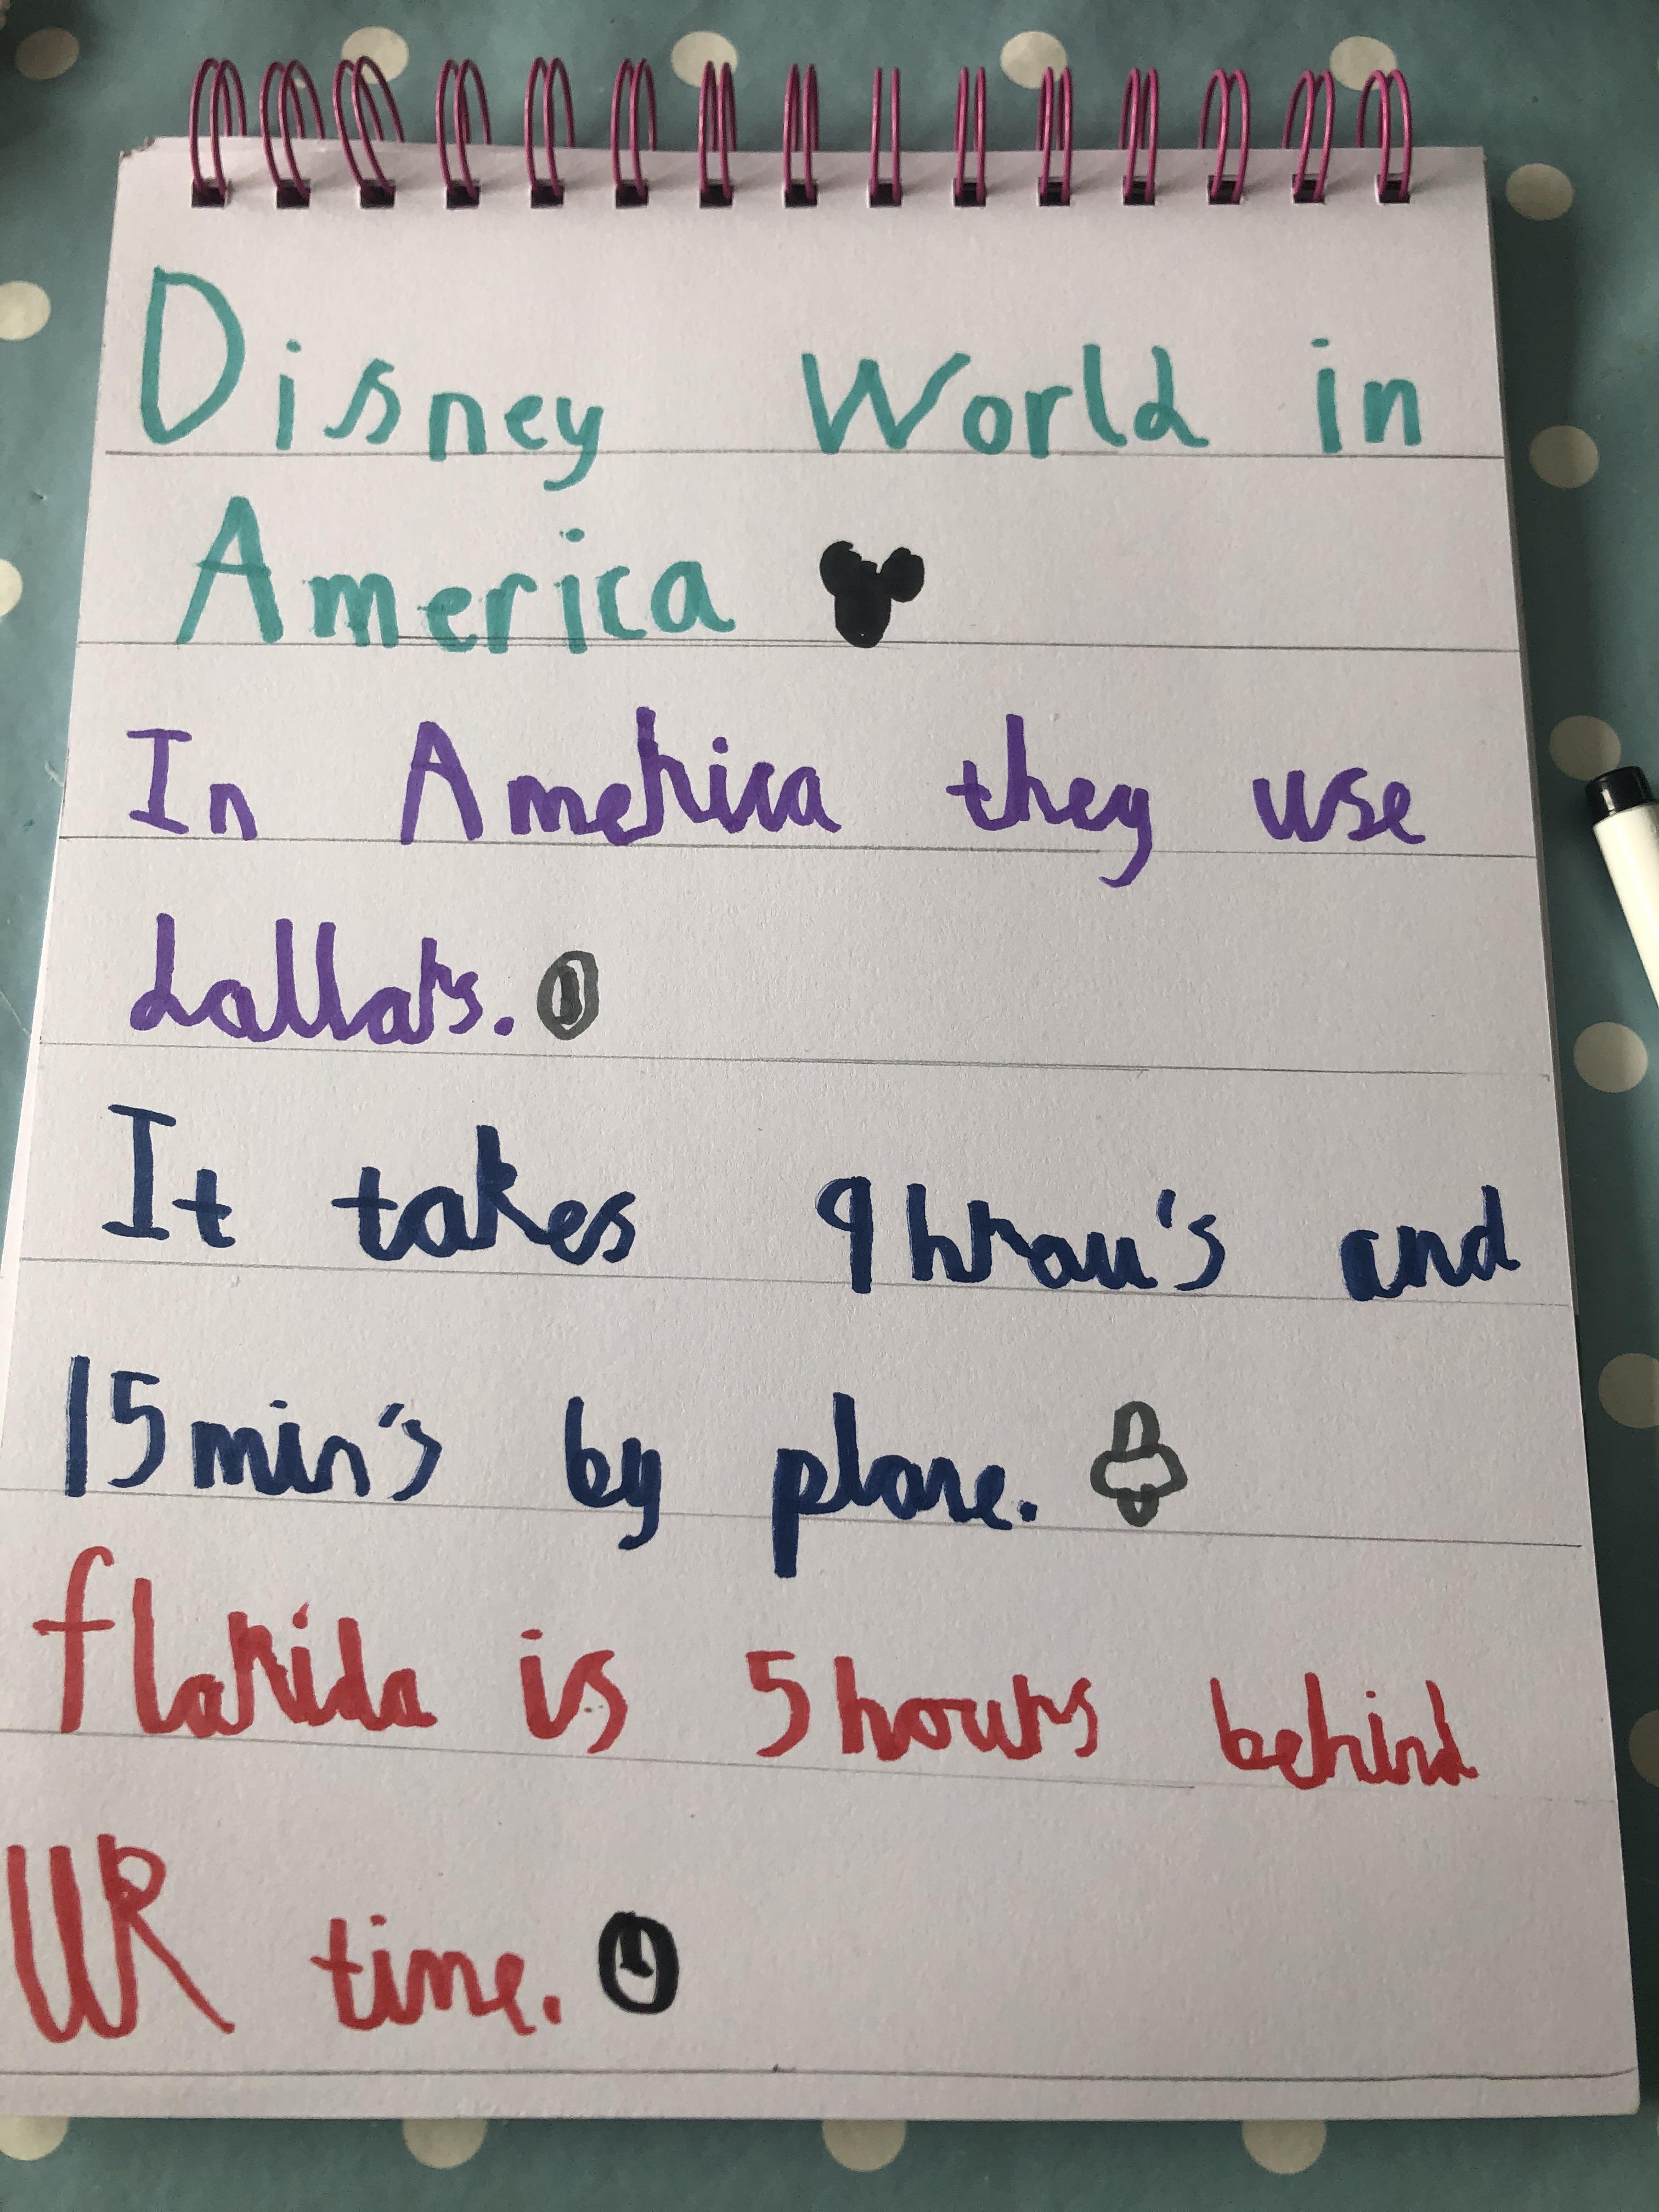 Disney World in
America
In America they use
dollars.
It takes 9 hrou's and
15 min's by plane.
florida is 5 hours behind
UK time.